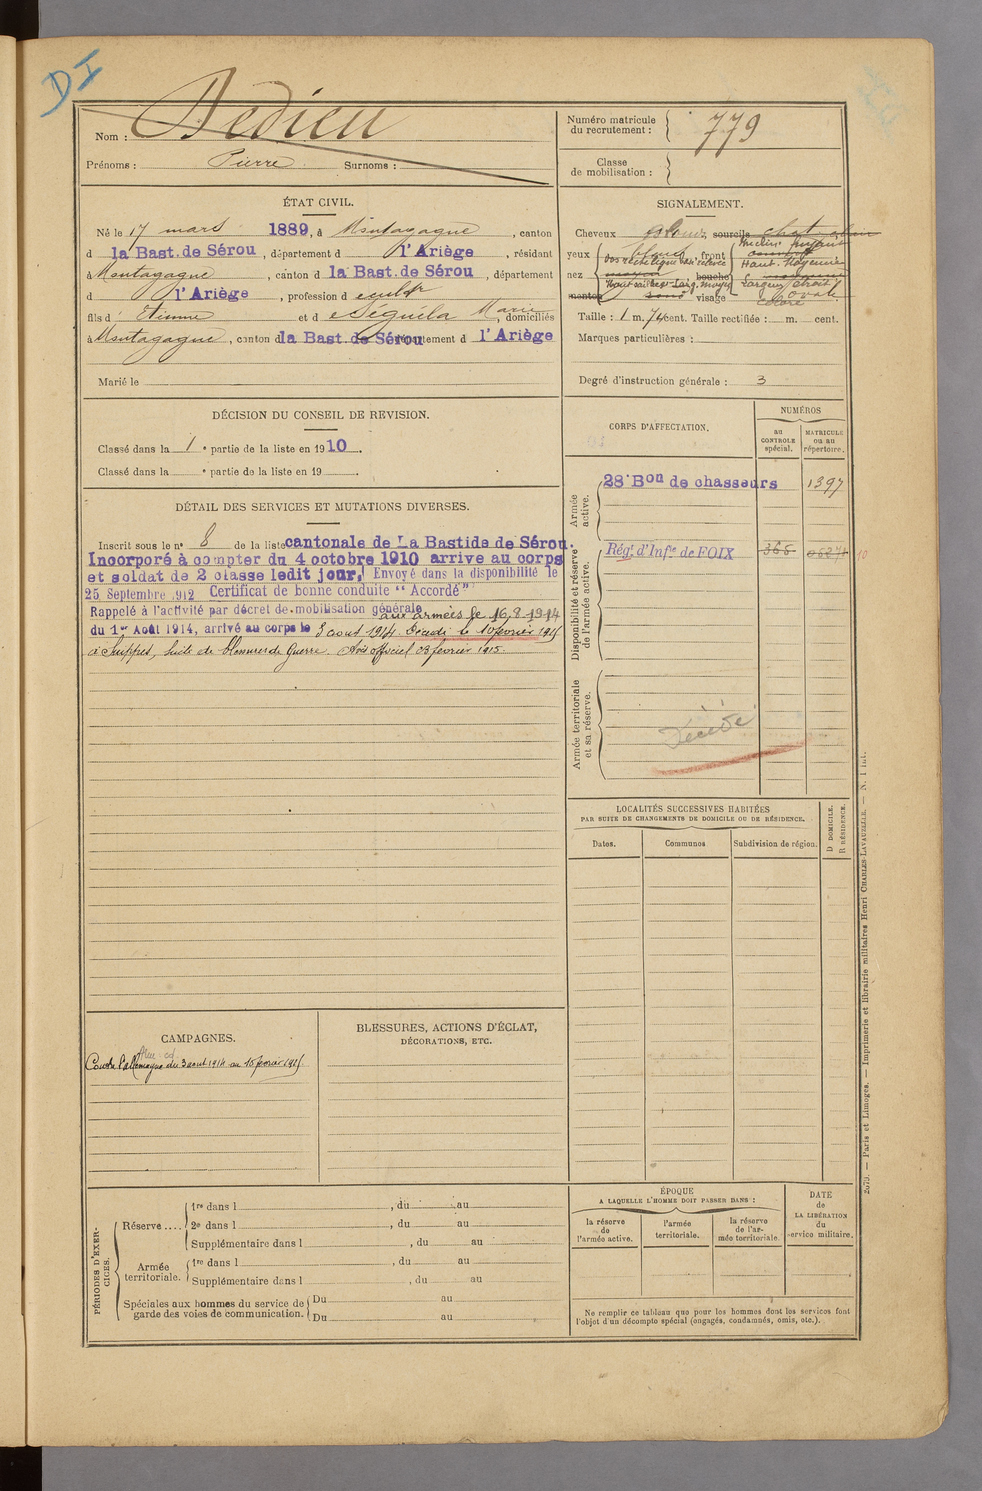 DI
Nom : Dedieu
Prénoms : Pierre Surnoms :
Numéro matricule du recrutement : 779
Classe de mobilisation :
ÉTAT CIVIL.
Né le 17 mars 1889, à Montagagne, canton
d la Bast. de Sérou, département d l'Ariège, résidant
à Montagagne, canton d la Bast. de Sérou, département
d l'Ariège, profession d cult^r
fils d' Etienne et d e Séguéla Marie, domiciliés
à Montagagne, canton d la Bast. de Sérou département d l'Ariège
Marié le
SIGNALEMENT.
Cheveux blonds, sourcils
yeux bleus, front
nez bouche
menton visage
Taille : 1 m. 74 cent. Taille rectifiée : m. cent.
Marques particulières :
Degré d'instruction générale : 3
DÉCISION DU CONSEIL DE REVISION.
Classé dans la 1e partie de la liste en 1910.
Classé dans la e partie de la liste en 19 .
DÉTAIL DES SERVICES ET MUTATIONS DIVERSES.
Inscrit sous le n° 8 de la liste cantonale de La Bastide de Sérou.
Incorporé à compter du 4 octobre 1910 arrive au corps
et soldat de 2 classe ledit jour. Envoyé dans la disponibilité le
25 Septembre 1912 Certificat de bonne conduite "Accordé"
Rappelé à l'activité par décret de mobilisation générale aux armées le 16.8.1914
du 1er Août 1914, arrivé au corps le 3 aout 1914. Décédé le 10 février 1915
à Suippes, suite de blessures de Guerre. Avis officiel 03 février 1915.
CORPS D'AFFECTATION.
NUMÉROS
au CONTROLE spécial.
MATRICULE ou au répertoire.
Armée active.
28e Bon de chasseurs 1397
Disponibilité et réserve de l'armée active.
Régt d'Infie de FOIX 366 10
Armée territoriale et sa réserve.
Décédé
LOCALITÉS SUCCESSIVES HABITÉES
PAR SUITE DE CHANGEMENTS DE DOMICILE OU DE RÉSIDENCE.
Dates. Communes Subdivision de région. D DOMICILE. R RÉSIDENCE.
CAMPAGNES.
Contre l'allemagne du 3 aout 1914 au 10 février 1915.
BLESSURES, ACTIONS D'ÉCLAT,
DÉCORATIONS, ETC.
PÉRIODES D'EXERCICES.
Réserve ....
1re dans l , du au
2e dans l , du au
Supplémentaire dans l , du au
Armée territoriale.
1re dans l , du au
Supplémentaire dans l , du au
Spéciales aux hommes du service de garde des voies de communication.
Du au
Du au
ÉPOQUE
A LAQUELLE L'HOMME DOIT PASSER DANS :
la réserve de l'armée active.
l'armée territoriale.
la réserve de l'armée territoriale
DATE DE LA LIBÉRATION du service militaire.
Ne remplir ce tableau que pour les hommes dont les services font
l'objet d'un décompte spécial (engagés, condamnés, omis, etc.).
Paris et Limoges. — Imprimerie et librairie militaires Henri CHARLES-LAVAUZELLE.